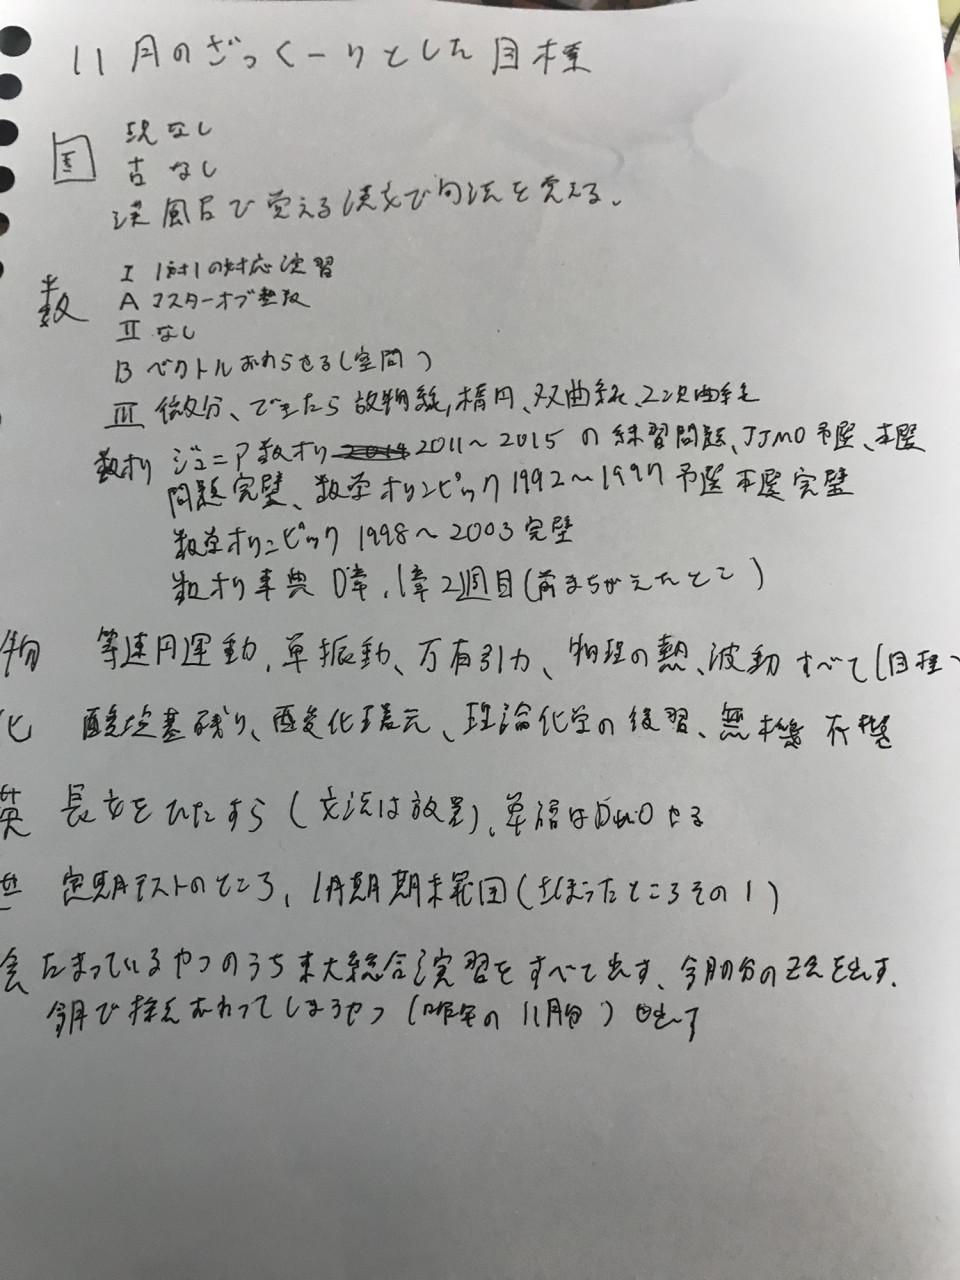 11月のざっくーりとした目標
国 現 なし
古 なし
漢 風呂で覚える漢文で句法を覚える。
数 I 1対1の対応演習
A マスターオブ整数
II なし
B ベクトルおわらせる(空間)
III 微分、できたら放物線,楕円、双曲線、2次曲線
数オリ ジュニア数オリ 2011〜2015の練習問題、JJMO予選、本選
問題完璧、数学オリンピック1992〜1997予選本選完璧
数学オリンピック 1998〜2003完璧
数オリ事典 0章,1章2週目(前まちがえたとこ)
物 等速円運動,単振動、万有引力、物理の熱、波動すべて(目標
化 酸塩基残り、酸化還元、理論化学の復習、無機 有機
英 長文をひたすら(文法は放置)、単語はDUOやる
定期テストのところ,1月期期末範囲(さぼったところその1)
会 たまっているやつのうち東大総合演習をすべて出す、今月の分のZ会を出す.
今月で採点おわってしまうやつ(昨年の11月分)出す